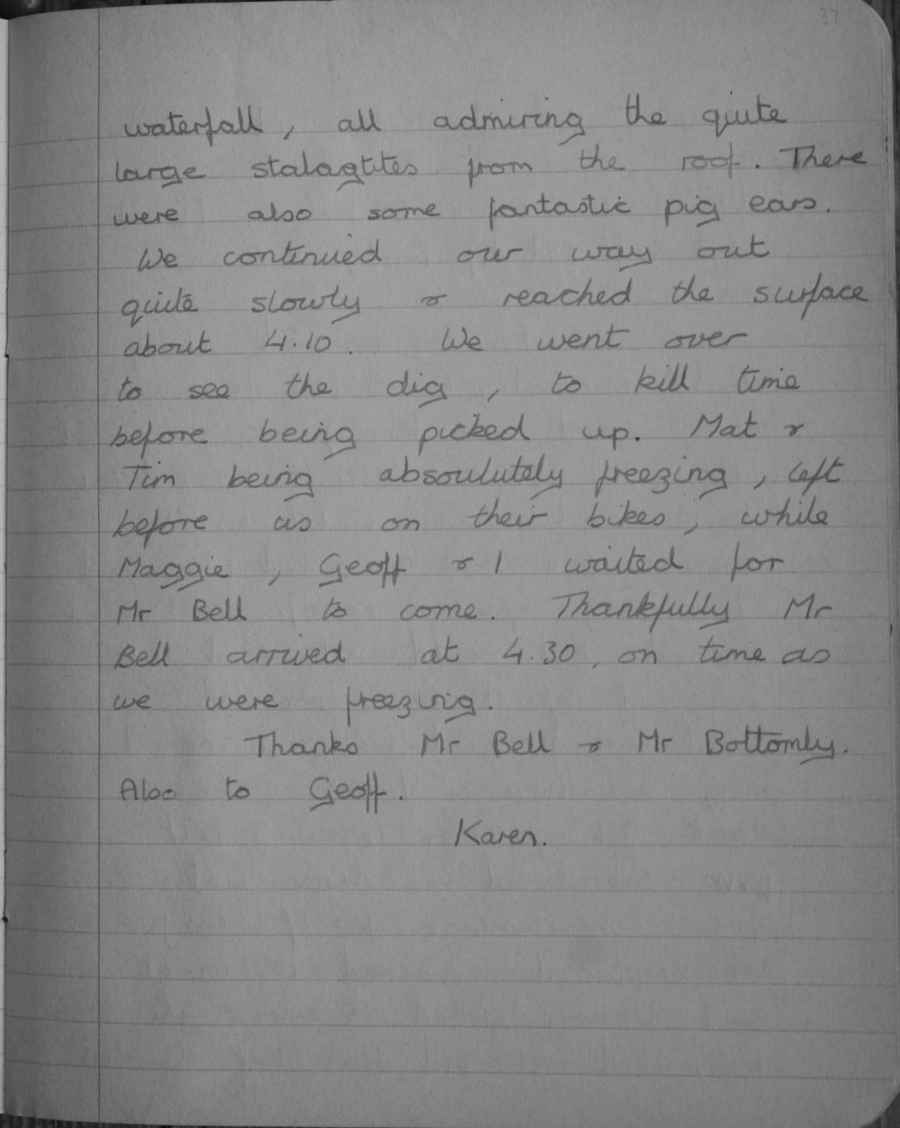 37
waterfall, all admiring the quite
large stalagtites from the roof. There
were also some fantastic pig ears.
We continued our way out
quite slowly & reached the surface
about 4.10. We went over
to see the dig, to kill time
before being picked up. Mat &
Tim being absoulutely freezing, left
before us on their bikes, while
Maggie, Geoff & I waited for
Mr Bell to come. Thankfully Mr
Bell arrived at 4.30, on time as
we were freezing.
Thanks Mr Bell & Mr Bottomly.
Also to Geoff.
Karen.